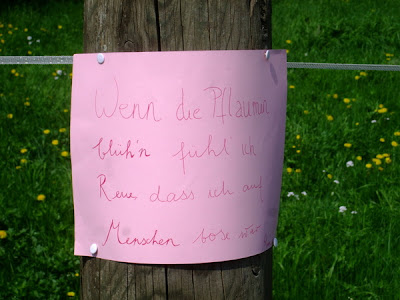 Wenn die Pflaumen
blüh'n fühl' ich
Reue, dass ich auf
Menschen böse war